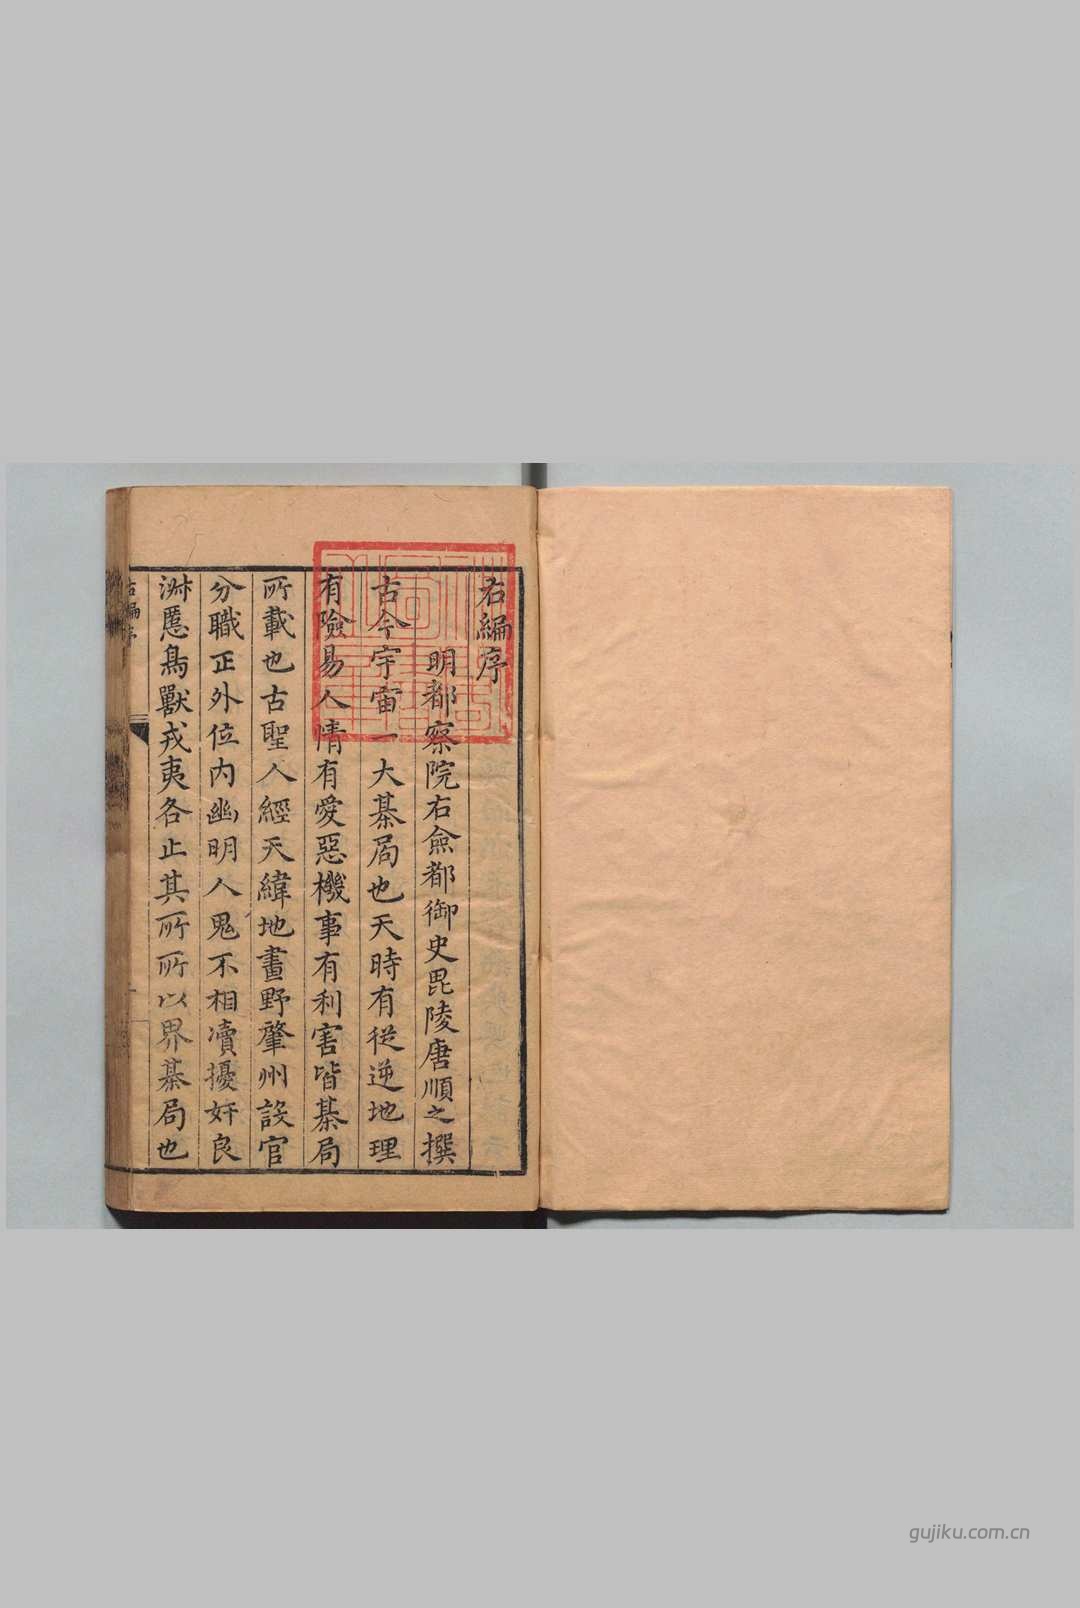 右編序
明都察院右僉都御史毘陵唐順之撰
古今宇宙一大棊局也天時有從逆地理
有險易人情有愛惡機事有利害皆棊局
所載也古聖人經天緯地畫野肇州設官
分職正外位內幽明人鬼不相瀆擾奸良
淑慝鳥獸戎夷各止其所所以界棊局也
右編序
gujiku.com.cn